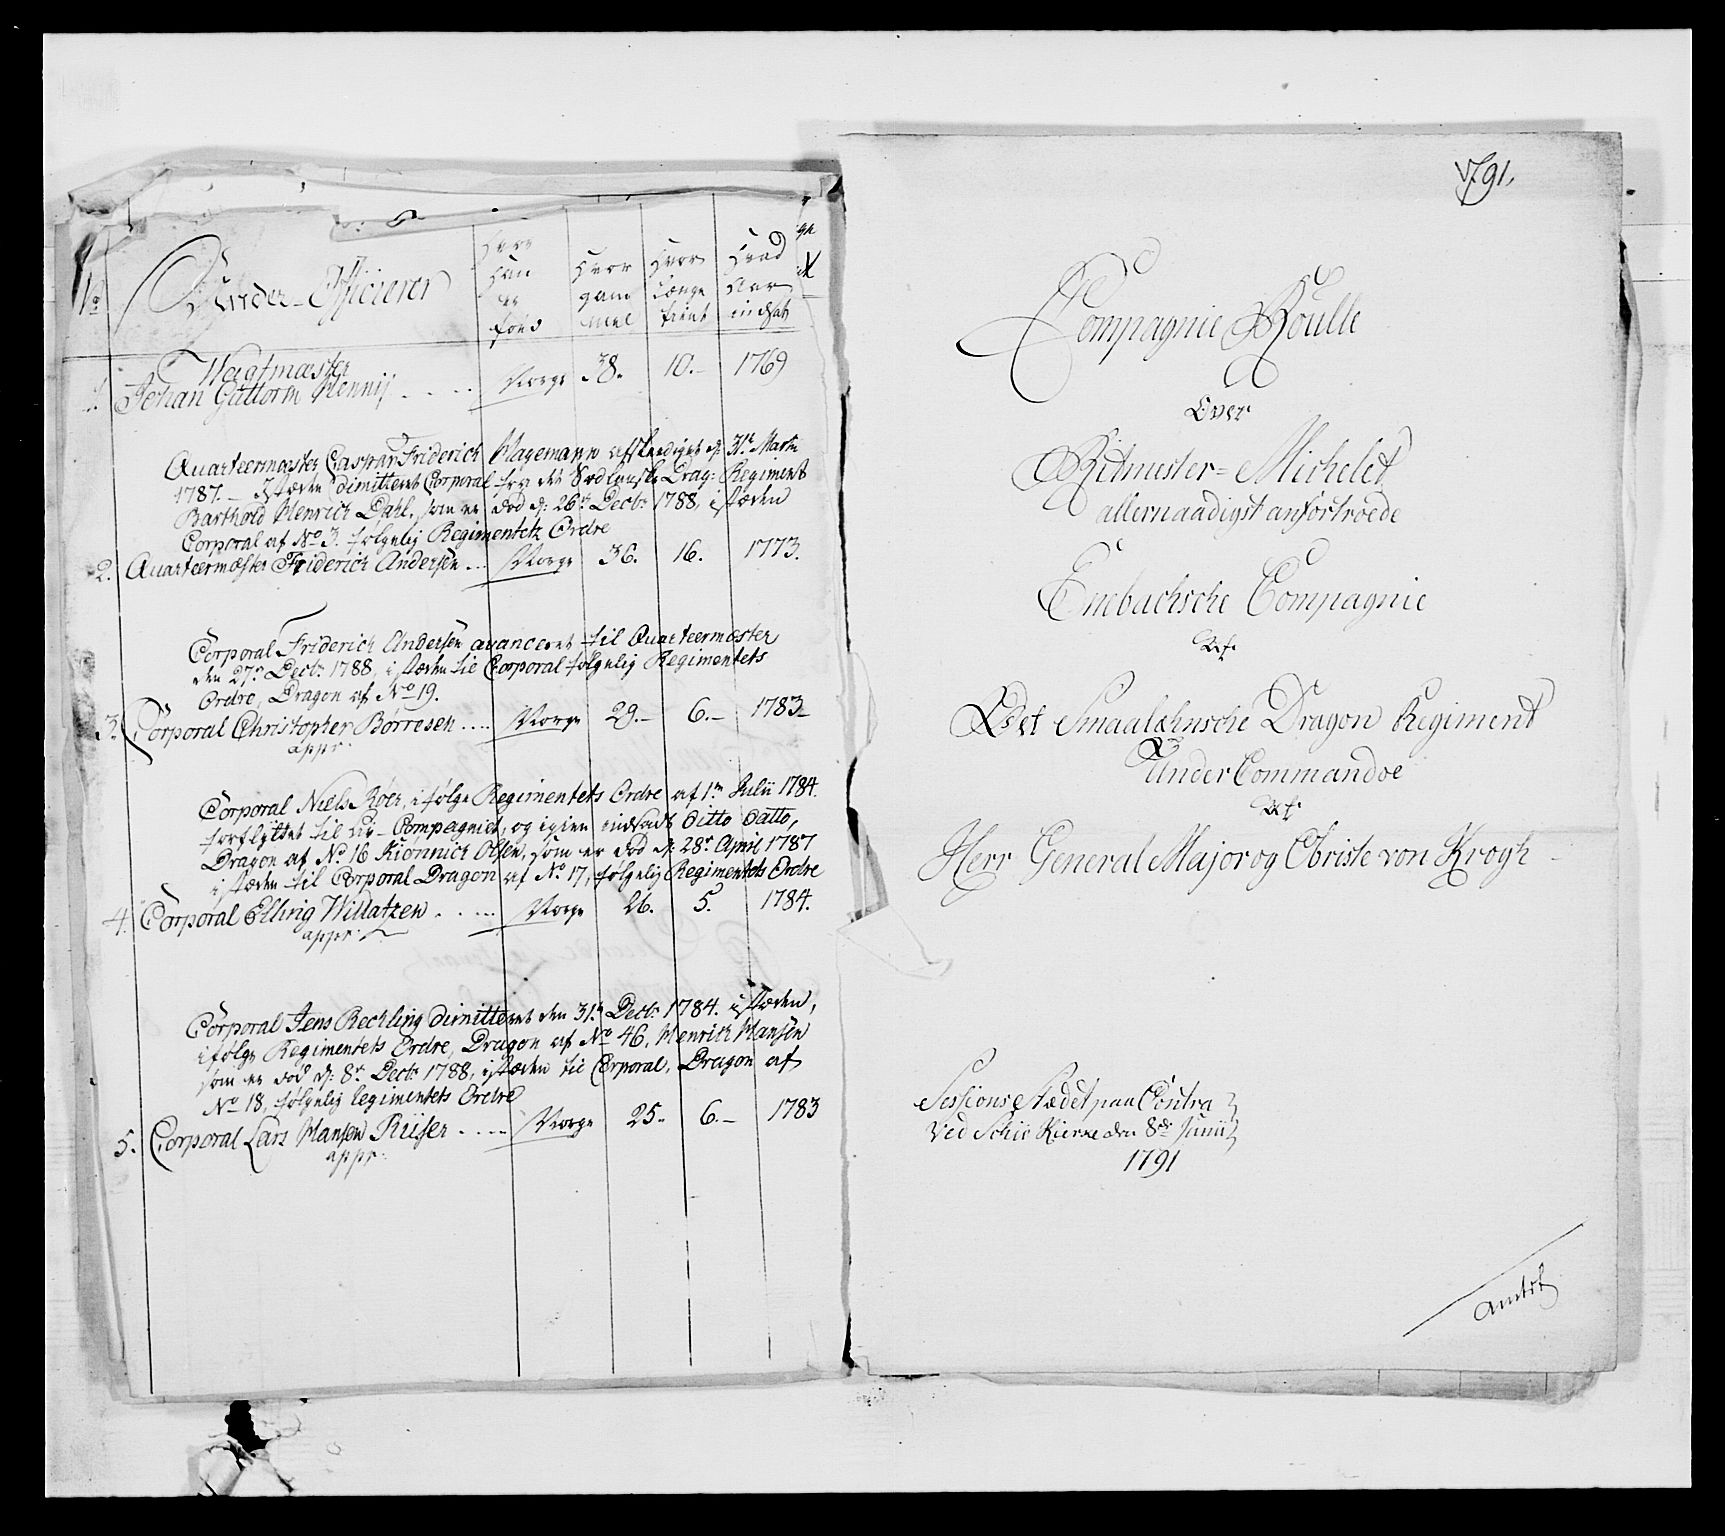 No
Under-Officierer
Hvor han er född
Hvor gammel
Hvor længe tient
Hvad Aar indsat
Wagtmæster
1. Johan Guttorm Hennij Norge 38. 10. 1769
Quarteermæster Caspar Friderich Hagemann afskediget d: 31te Martii
1787. – I stæden dimitteret Corporal fra det Drag: Regiment
Barthold Henrich Dahl, som er död d: 26de Decbr 1788, i stæden
Corporal af No 3. følgelig Regimentets Ordre
2. Quarteermæster Friderich Andersen Norge 36. 16. 1773.
Corporal Friderich Andersen avanceret til Quarteermæster
den 27de Decbr 1788, i stæden til Corporal følgelig Regimentets
Ordre, Dragon af No 19.
3. Corporal Christopher Börresen Norge 29. 6. 1783
appr:
Corporal Niels Röer, i følge Regimentets Ordre af 1te Julii 1784.
forflyttet til Liv-Compagniet, og igien indsadt ditto datto,
Dragon af No 16 Kiönnich Olsen, som er död d: 28de April 1787
i stæden til Corporal Dragon af No 17, følgelig Regimentets Ordre
4. Corporal Elling Willatzen Norge 26. 5. 1784.
appr:
Corporal Jens Rechling dimitteret den 31te Decbr 1784. i stæden,
ifølge Regimentets Ordre, Dragon af No 46, Henrich Hansen
som er död d: 8de Decbr 1788, i stæden til Corporal, Dragon af
No 18, følgelig Regimentets Ordre
5. Corporal Lars Hansen Riiser Norge 25. 6. 1783
appr:
1791,
Compagnie Roulle
Over
Ritmester Michelet
allernaadigst anfortroede
Enebachsche Compagnie
Af
Det Smaalehnsche Dragon Regiment
Under Commandoe
Af
Herr General Major og Obriste von Krogh
Sessions Stædet paa Contra
Ved Schie Kierke den 8de Junii
1791